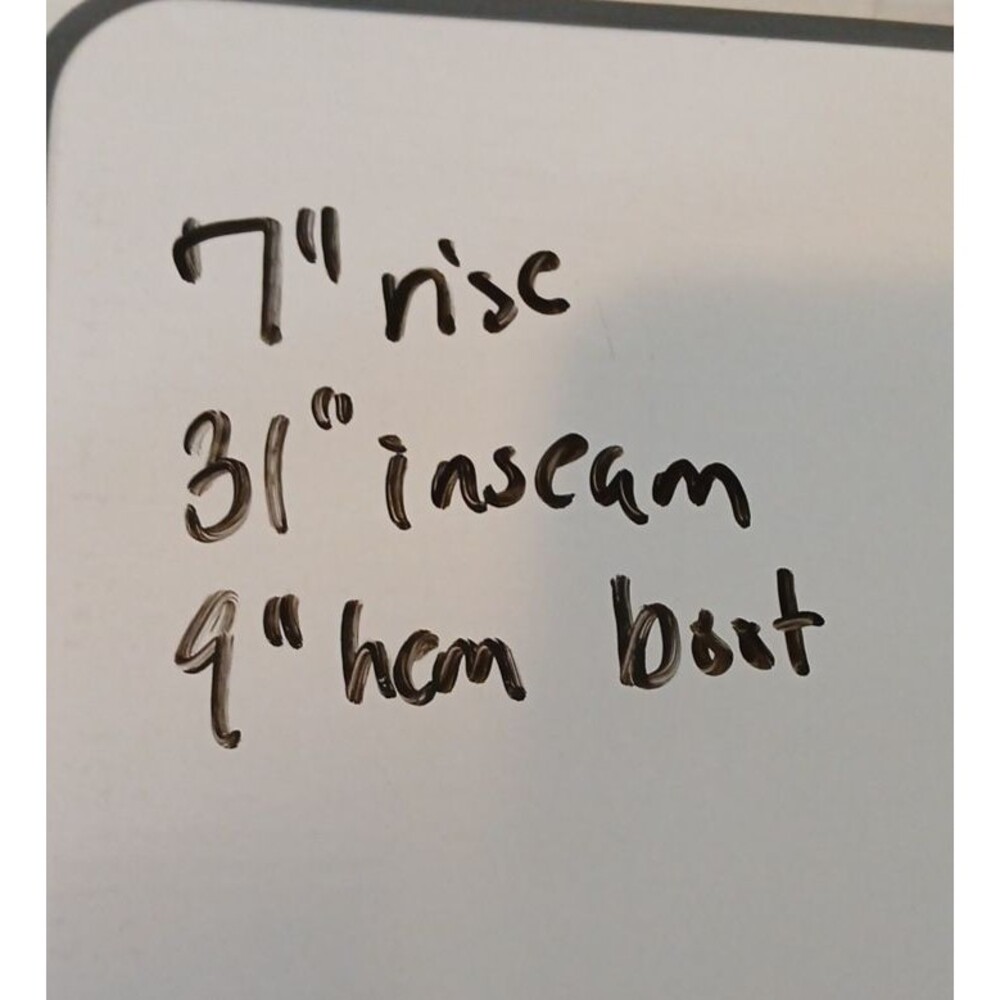 7" rise
31" inseam
9" hem boot